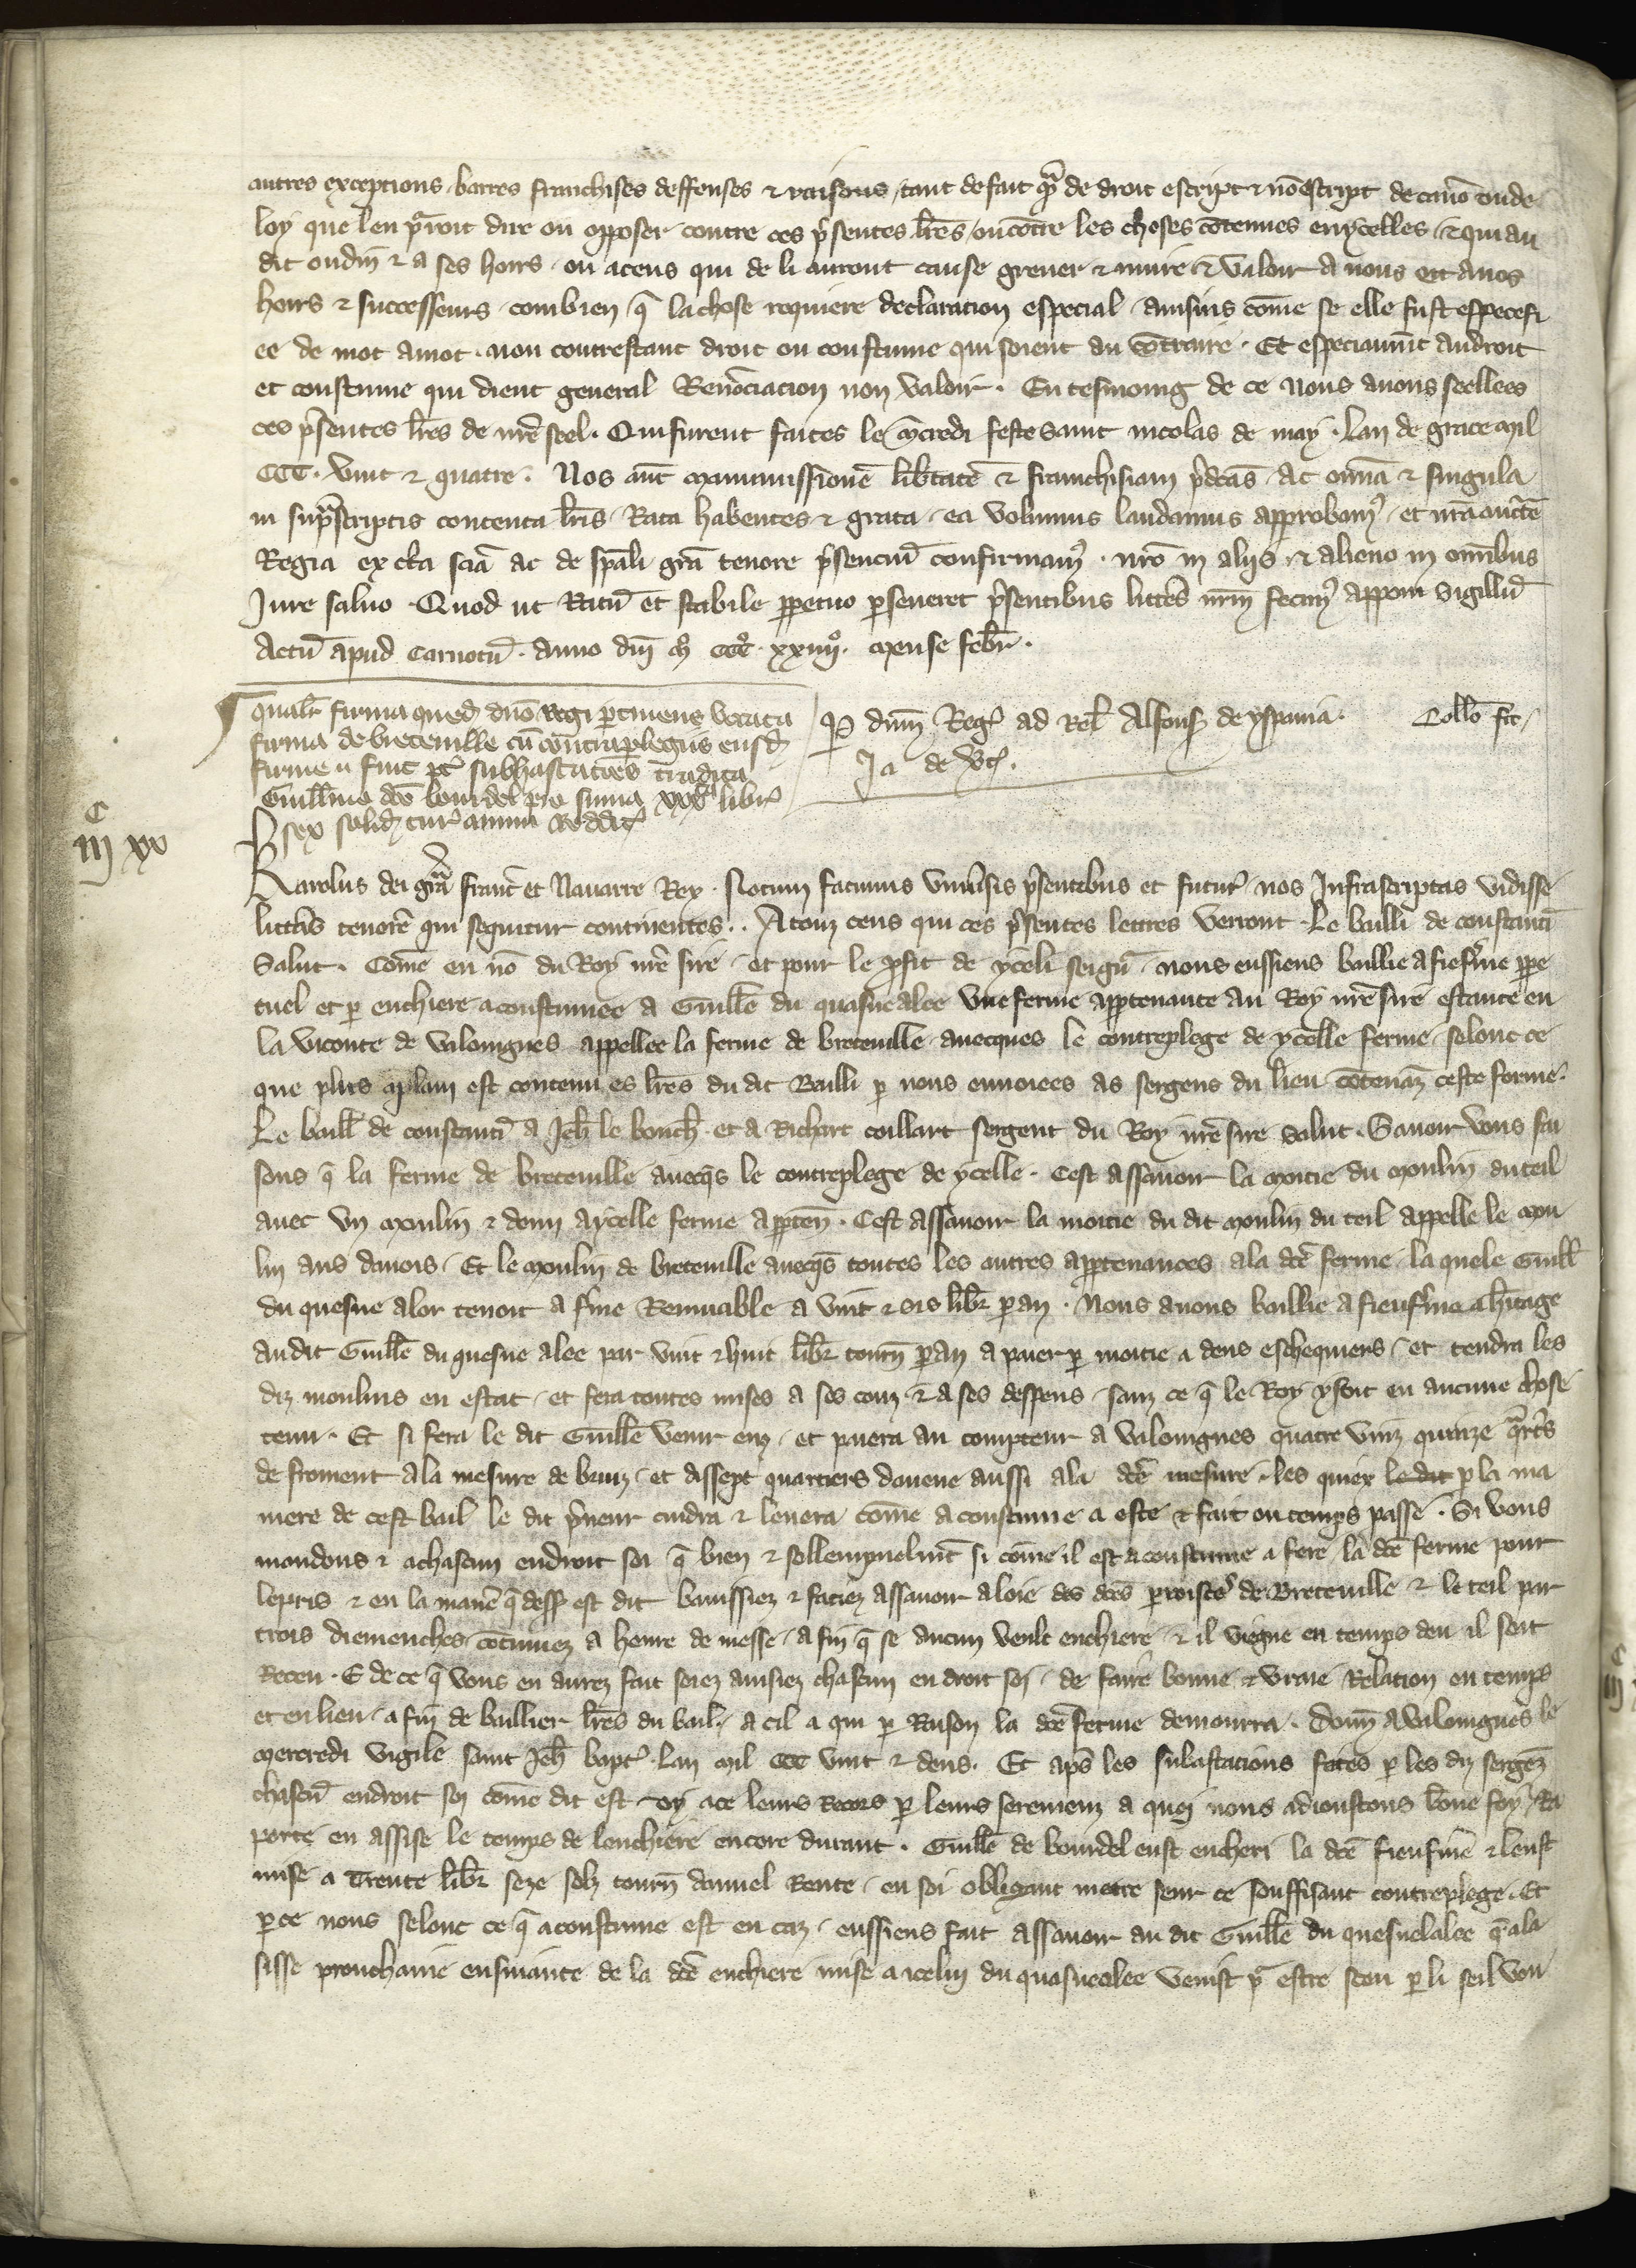 autres exceptions barres franchises deffenses & raisons tant de fait q̃ de droit escript & nõ escript de canõ ou de
loy que len pͣroit dire ou opposer contre ces p̃sentes lr̃es ou cõtre les choses cõtenues en ycelles & qui au
dit oudin & a ses hoirs ou a ceus qui de li auront cause grever & nuire & valoir a nous et a nos
hoirs & successeurs combien q̃ la chose requiere declaracion especial ausuis cõme se elle fust especefi
ee de mot a mot non contrestant droit ou coustume qui soient au cõtraire Et especiaumẽt au droit
et coustume qui dient general Renõciacion non valoir. En tesmoing de ce nous avons seellees
ces p̃sentes lr̃es de nr̃e seel. Qui furent faites le mc̃redi feste saint nicolas de may. Lan de grace mil
CCC. vint & quatre. Nos aut̃ manumissionẽ lib̃tatẽ & franchisiam p̃dc̃as Ac om̃ia & singula
in sup̃scriptis contenta lr̃is Rata habentes & grata ea volumus laudamus approbam9 et nr̃a auct̃e
Regia ex c̃ta sc̃ia ac de sp̃ali gr̃a tenore p̃senciũ confirmam9. nr̃o in aliis & alieno in om̃ibus
Jure salvo. Quod ut Ratũ et stabile ppetuo pseveret p̃sentibus litt̃is nr̃m fecim9 apponi Sigillũ
Actũ apud Carnotũ. Anno dñi mº CCCº. xxiiijº. mense febr̃.
qualr̃ firma quedã dño Regi ptinens vocata
firma de breteville cũ contraplegiis eiusd̃
firme fuit pt̃ subhastac̃oes tradita
Guillmo dc̃o bourdel pro suma xxxta libr̃
sex solid̃ tur̃ annui Reddit9
P dñm Reg̃ ad Rel̃ Alfons̃ de yspania. Coll̃o fc̃
Ja de vc̃.
C
iij xv
Karolus dei gr̃a franc̃ et Navarre Rex. Notum facimus uniṽsis p̃sentibus et futur̃ nos Infrascriptas vidisse
litt̃as tenorẽ qui sequitur continentes. A touz ceus qui ces p̃sentes lettres verront Le bailli de constanti
Salut. Cõme en nõ du Roy nr̃e sire et pour le p̃fit de yceli seign̄ nous eussiens baillie a fieferme ppe
tuel et p enchiere acoustumee a Guill̃e du quesne alee une ferme appartenante au Roy nr̃e sire estante en
la viconte de valoingnes appellee la ferme de breteville avecques le contreplege de ycelle ferme selonc ce
que plus a plain est contenu es lr̃es du dit Bailli p nous envoiees as sergens du lieu cõtenãz ceste forme.
Le baill̃ de constanti a Jeh̃ le bouch̃ et a Richart coillart sergent du Roy nr̃e sire salut. Savoir vous fai
sons q̃ la ferme de breteville avecq̃s le contreplege de ycelle. Cest assavoir la moitie du moulin du teil
avec un moulin & demi a ycelle ferme apptẽn. Cest assavoir la moitie du dit moulin du teil appelle le mou
lin aus danois. Et le moulin de breteville avecq̃s toutes les autres apptenances a la dc̃e ferme la quele Guill̃
du quesne alor tenoit a f̃me Remuable a vint & sis libr̃ pan. Nous avons baillie a fieuf̃me a h̃itage
au dit Guill̃e du quesne alee par vint & huit libr̃ tourñ pan a paier p moitie a deus eschequiers et tendra les
diz moulins en estat et fera toutes mises a ses couz & a ses despens sanz ce q̃ le Roy y soit en aucune chose
tenu. Et si fera le dit Guill̃e venir enz et paiera au compteur a valoingnes quatre vinz quinze q̃rt̃s
de froment a la mesure de bruiz et dissept quartiers davene aussi a la dc̃e mesure les quiex le dit p la ma
niere de cest bail le dit p̃neur cuidra & levera cõme acoustume a este & fait ou temps passe. Si vous
mandons & a chascun endroit soi q̃ bien & sollempnelmẽt si cõme il est acoustume a fere la dc̃e ferme pour
le pris & en la manie q̃ dess̃ est dit banissiez & faciez assavoir a loie des dc̃es proisc̃ de Breteville & le teil par
trois diemenches cõtinuez a heure de messe a fin q̃ se aucun veult encherir & il viegne en temps deu il soit
Receu. E de ce q̃ vous en aurez fait soiez avisiez chascun en droit soi de faire bonne & vraie Relation en temps
et en lieu a fin de baillier lr̃es du bail a cil a qui p Raison la dc̃e ferme demourra. Donñ a valoingnes le
mercredi vigile saint Jeh̃ bapt̃. Lan mil CCC vint & deus. Et aps̃ les subastacions faites p les diz sergẽz
chascũ endroit soi cõme dit est oy a ce leurs Recors p leurs seremenz a quoi nous adioustons bõne foy Ra
porte en assise le temps de lenchiere encore durant. Guill̃e de bourdel eust encheri la dc̃e fieuf̃me & leust
mise a Trente libr̃ seze solz tourñ danuel Rente en soi obligant metre seur ce souffisant contreplege. Et
p ce nous selonc ce q̃ acoustume est en caz eussiens fait assavoir au dit Guill̃e du quesnelalee q̃ a la
sisse prouchaine ensuiante de la dc̃e enchiere mise a icelui du quasnealee venist p̃ estre seeu p li seil vou